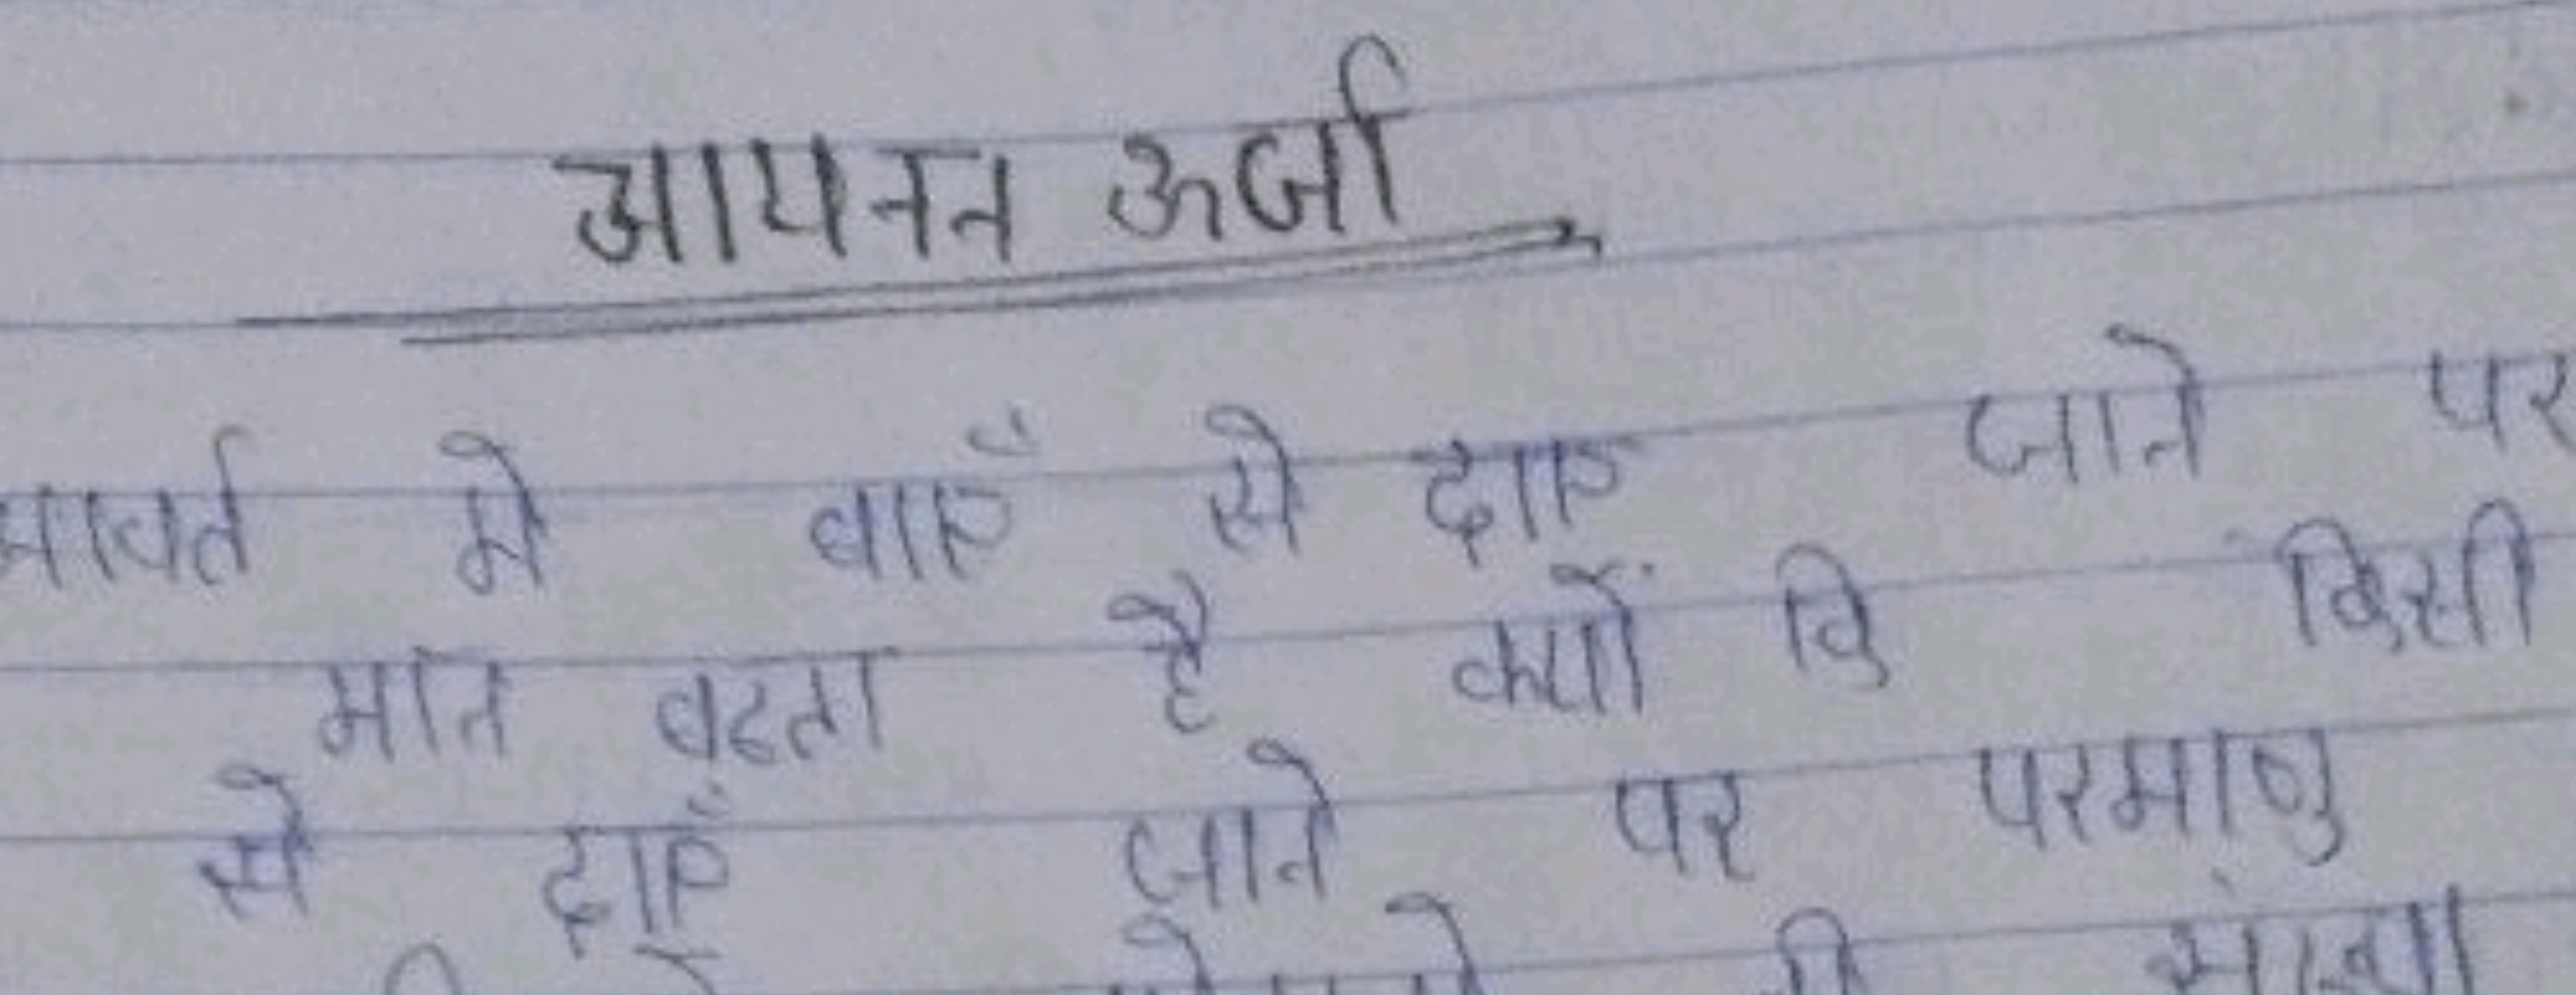 आयनन ऊर्जा
में बाएँ से दाए जाने पर
मान बढता है क्यों कि किसी
से दाएँ जाने पर परमाणु
संख्या